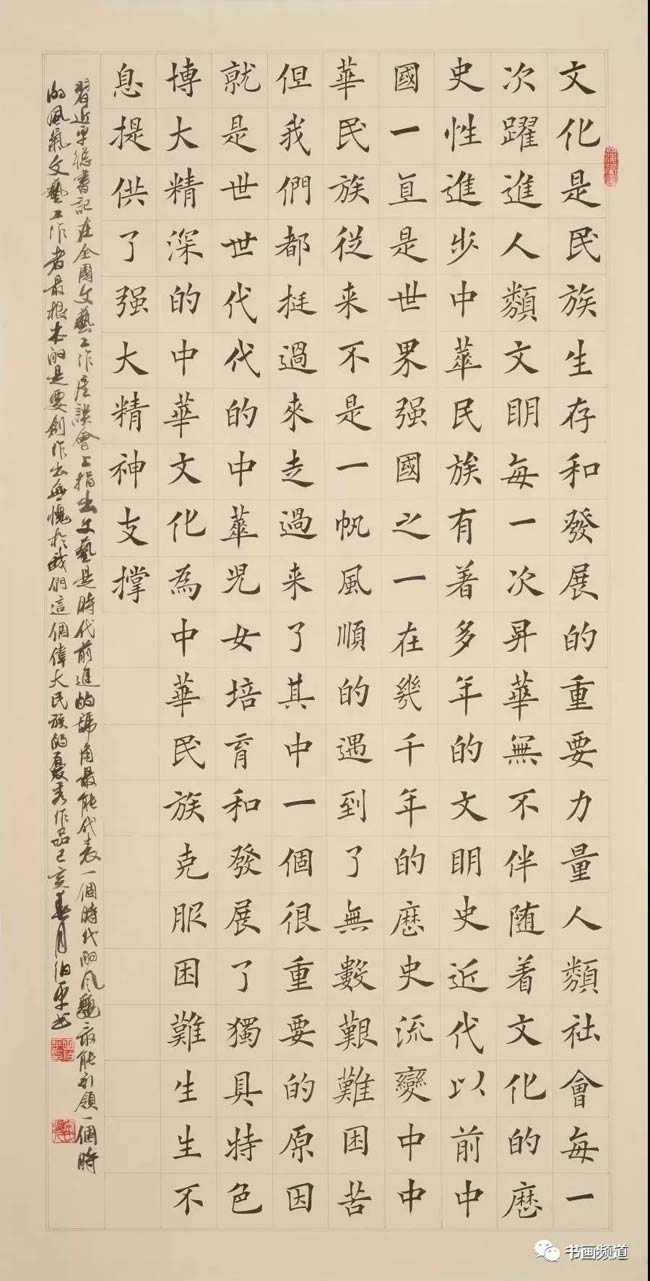 文化是民族生存和發展的重要力量人類社會每一
次躍進人類文明每一次昇華無不伴随着文化的歷
史性進步中華民族有着多年的文明史近代以前中
國一直是世界强國之一在幾千年的歷史流變中中
華民族從来不是一帆風順的遇到了無數艱難困苦
但我們都挺過來走過来了其中一個很重要的原因
就是世世代代的中華兒女培育和發展了獨具特色
博大精深的中華文化為中華民族克服困難生生不
息提供了强大精神支撑
習近平總書記在全國文藝工作座談會上指出文藝是時代前進的號角最能代表一個時代的風貌最能引領一個時
的風氣文藝工作者最根本的是要創作出無愧於我們這個偉大民族的優秀作品己亥春月
书画频道